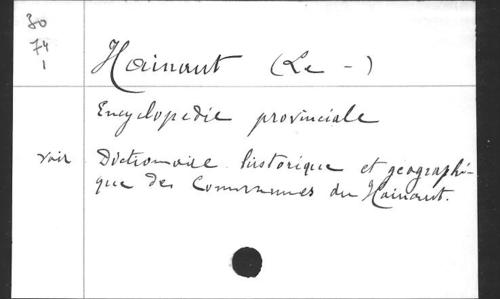 30
74
1
Hainaut (Le -)
Encyclopedie provinciale
voir Dictionnaire historique et geographi-
que des Communes du Hainaut.